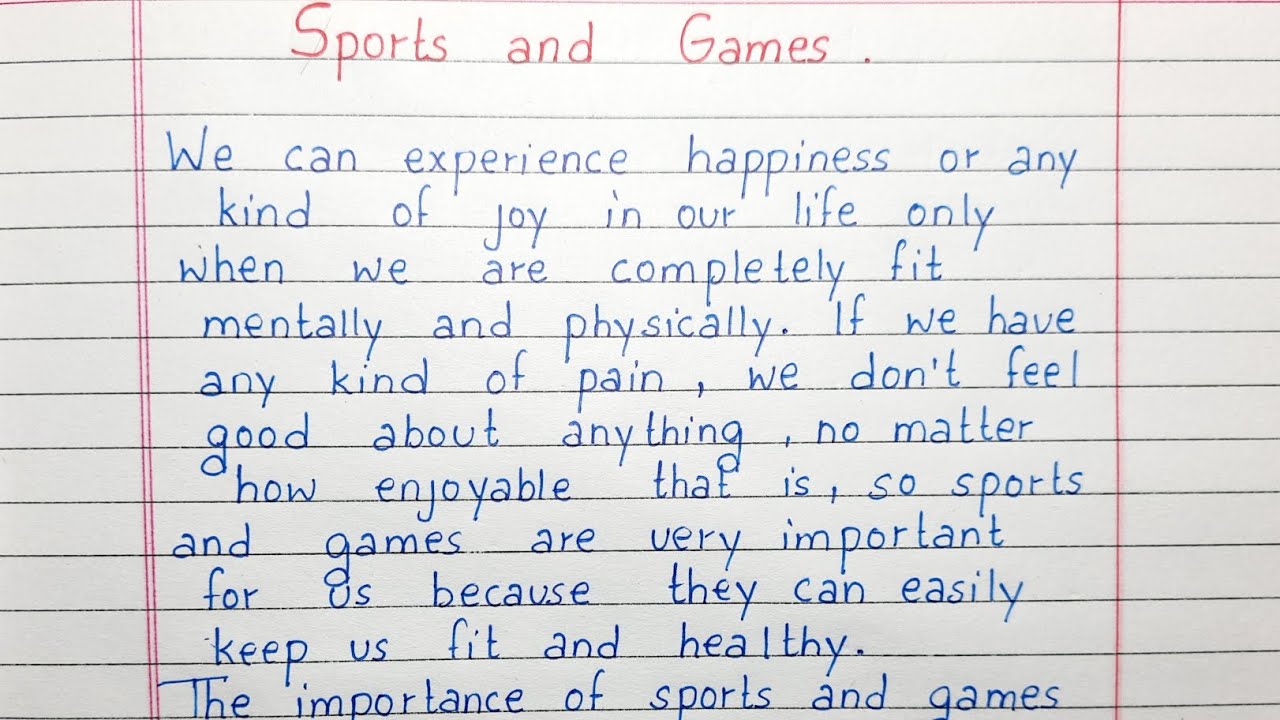 Sports and Games.
We can experience happiness or any
kind of joy in our life only
when we are completely fit
mentally and physically. If we have
any kind of pain, we don't feel
good about anything, no matter
how enjoyable that is, so sports
and games are very important
for us because they can easily
keep us fit and healthy.
The importance of sports and games